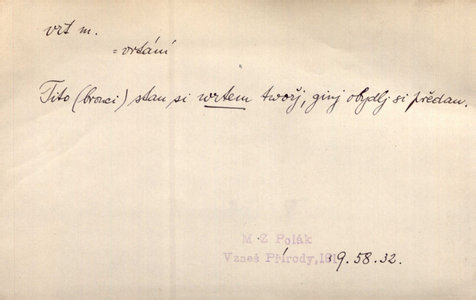 vrt m.
= vrtání
Tito (brouci) stan si wrtem twořj, ginj obydlj si předau.
M Z Polák
Vzneš Přírody, 1819. 58. 32.